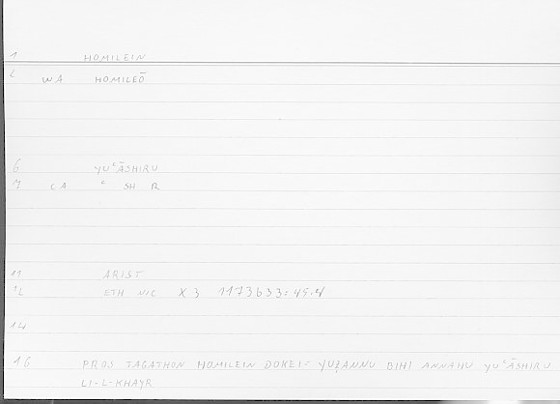 1 HOMILEIN
2 WA HOMILEŌ
6 YUʿĀSHIRU
7 CA ʿ SH R
11 ARIST
12 ETH NIC X 3 1173b33: 45.4
14
16 PROS TAGATHON HOMILEIN DOKEI - YUẒANNU BIHI ANNAHU YUʿĀSHIRU
LI-L-KHAYR